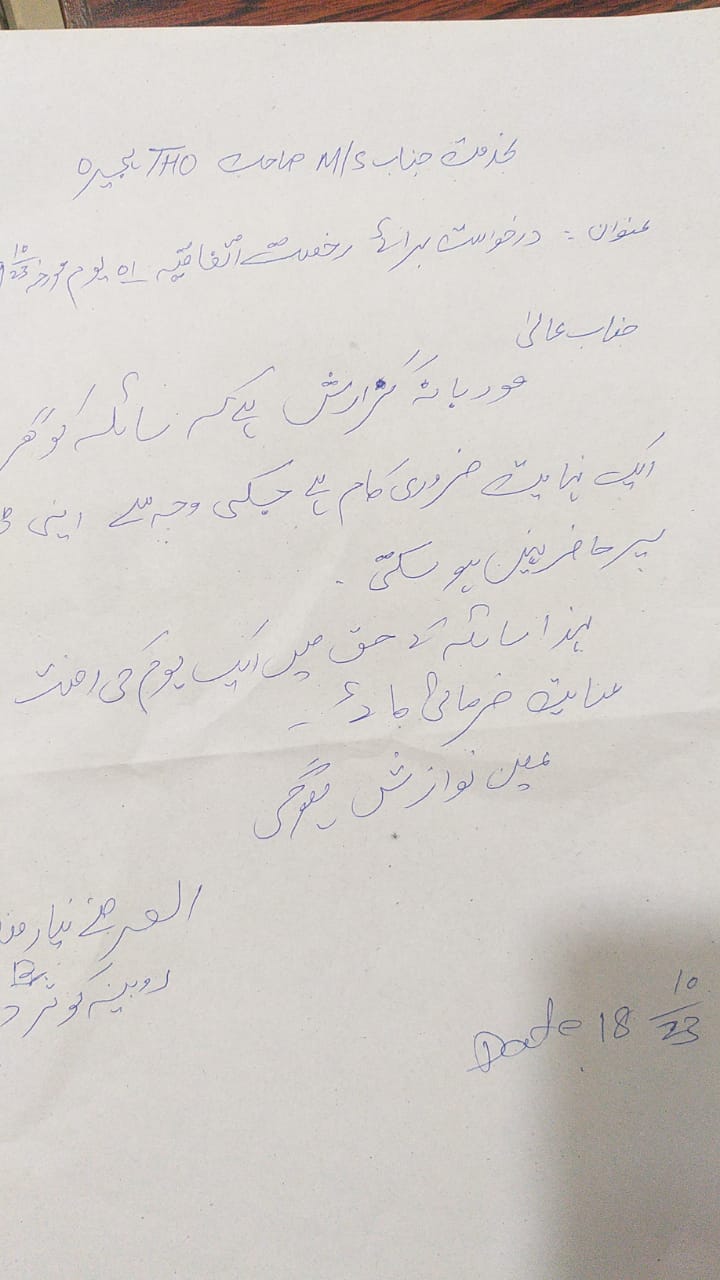 بخدمت جناب M/S صاحب THO ہجیرہ
عنوان :- درخواست برائے رخصت اتفاقیہ 01 یوم مورخہ 10/23
جناب عالیٰ
مودبانہ گزارش ہے کہ سائلہ کو گھر
ایک نہایت ضروری کام ہے جسکی وجہ سے اپنی
پر حاضر نہیں ہو سکتی ۔
لہذا سائلہ کے حق میں ایک یوم کی رخصت
عنایت فرمائی جائے ۔
عین نوازش ہوگی
العرضے نیازمند
روبینہ کوثر
Date 18 10/23